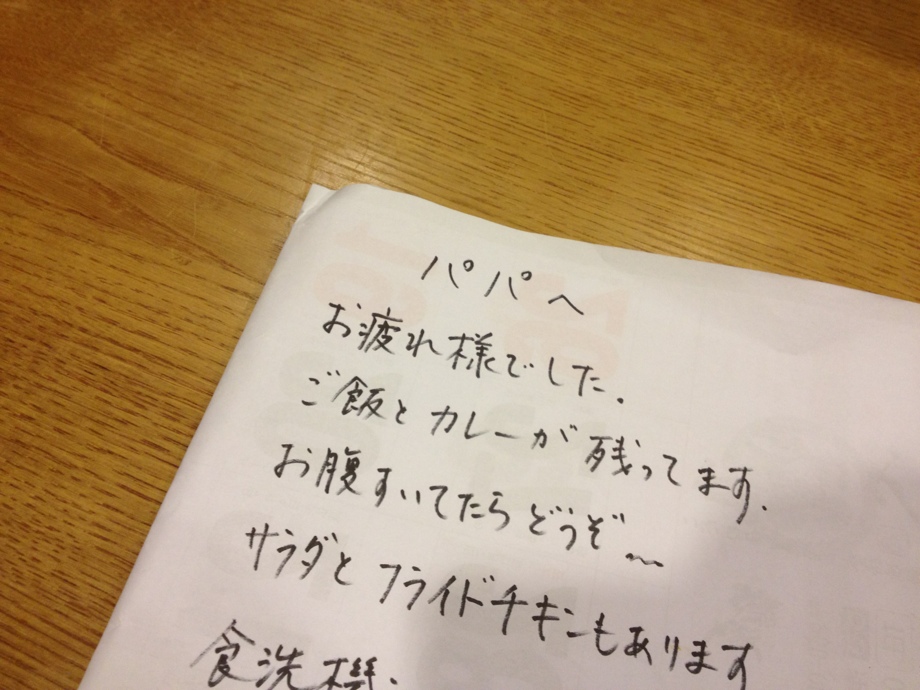 パパへ
お疲れ様でした.
ご飯とカレーが残ってます.
お腹すいてたらどうぞ〜
サラダとフライドチキンもあります
食洗機.